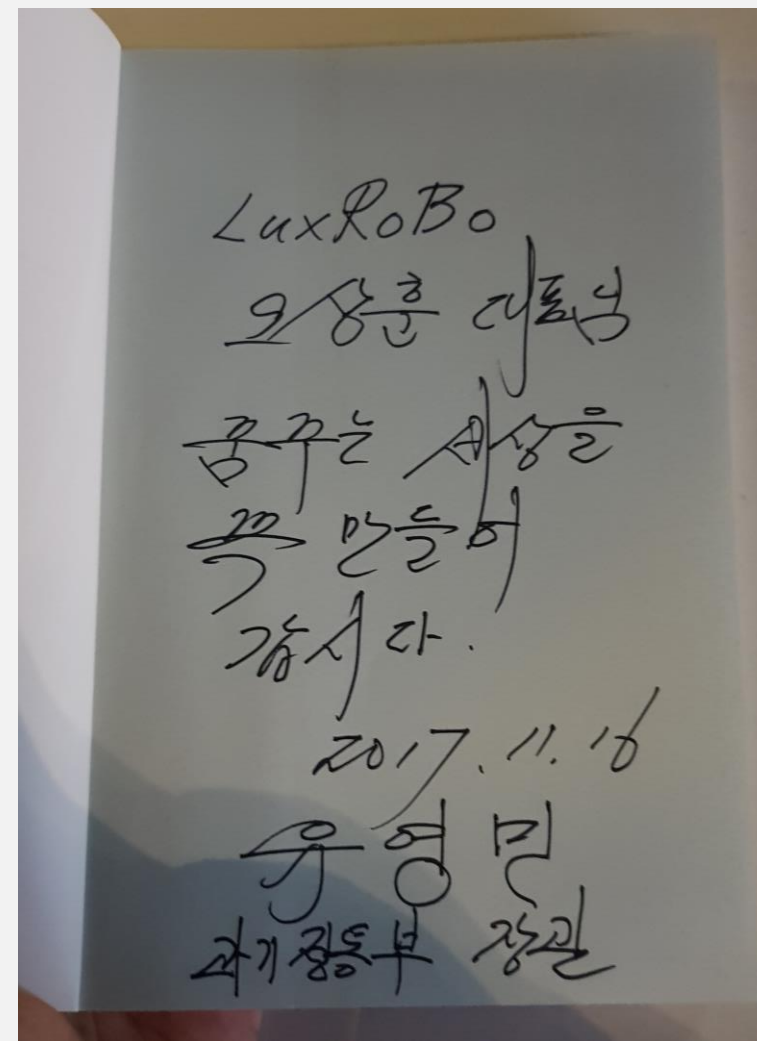 LuxRoBo
오상훈 대표님
꿈꾸는 세상을
꼭 만들어
갑시다.
2017. 11. 16
유영민
과기정통부 장관